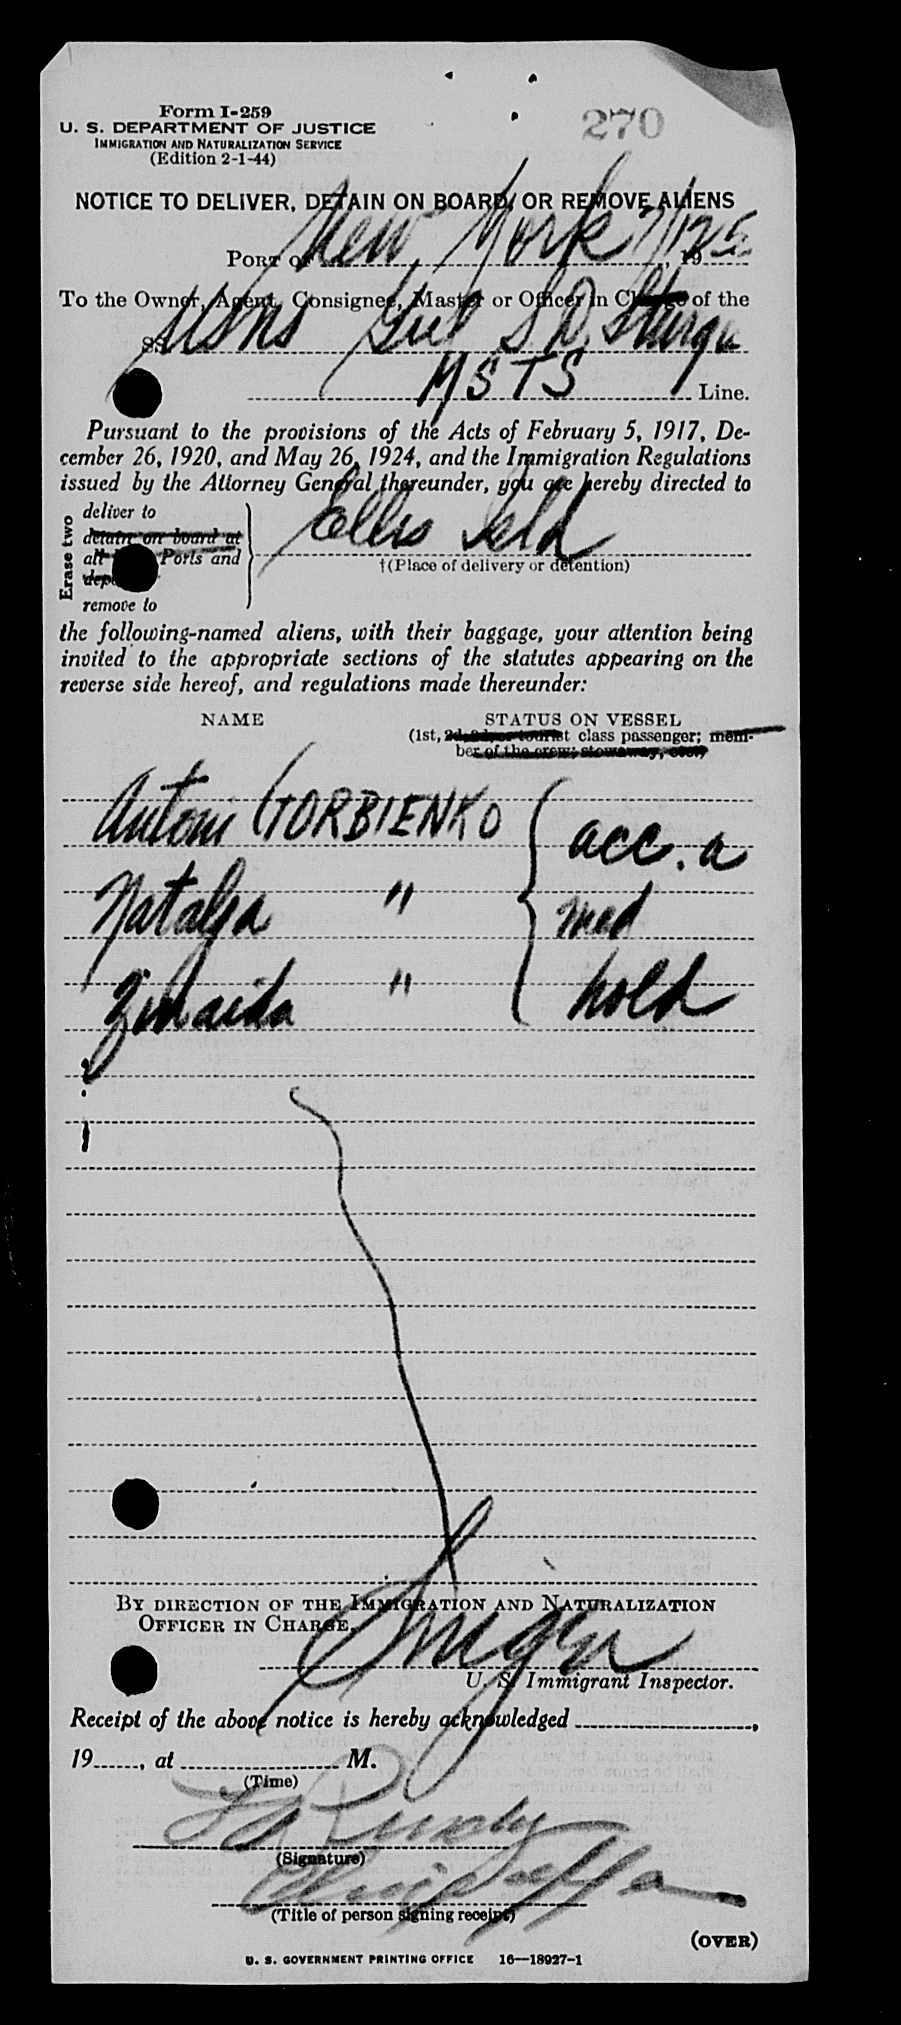 Form I-259
270
U. S. DEPARTMENT OF JUSTICE
IMMIGRATION AND NATURALIZATION SERVICE
(Edition 2-1-44)
NOTICE TO DELIVER, DETAIN ON BOARD, OR REMOVE ALIENS
PORT OF New York 19
To the Owner, Agent, Consignee, Master or Officer in Charge of the
SS USNS S D Sturgis
MSTS Line.
Pursuant to the provisions of the Acts of February 5, 1917, De-
cember 26, 1920, and May 26, 1924, and the Immigration Regulations
issued by the Attorney General thereunder, you are hereby directed to
Erase two
deliver to
detain on board at
all Ports and
remove to
Ellis Isld
†(Place of delivery or detention)
the following-named aliens, with their baggage, your attention being
invited to the appropriate sections of the statutes appearing on the
reverse side hereof, and regulations made thereunder:
NAME STATUS ON VESSEL
(1st, 2d, 3d, or tourist class passenger; mem-
ber of the crew; stowaway, etc.)
Antoni GORBIENKO acc. a
Natalja " med
Zinaida " hold
BY DIRECTION OF THE IMMIGRATION AND NATURALIZATION
OFFICER IN CHARGE.
U. S. Immigrant Inspector.
Receipt of the above notice is hereby acknowledged ,
19 , at M.
(Time)
(Signature)
(Title of person signing receipt)
(OVER)
U. S. GOVERNMENT PRINTING OFFICE 16—18927-1